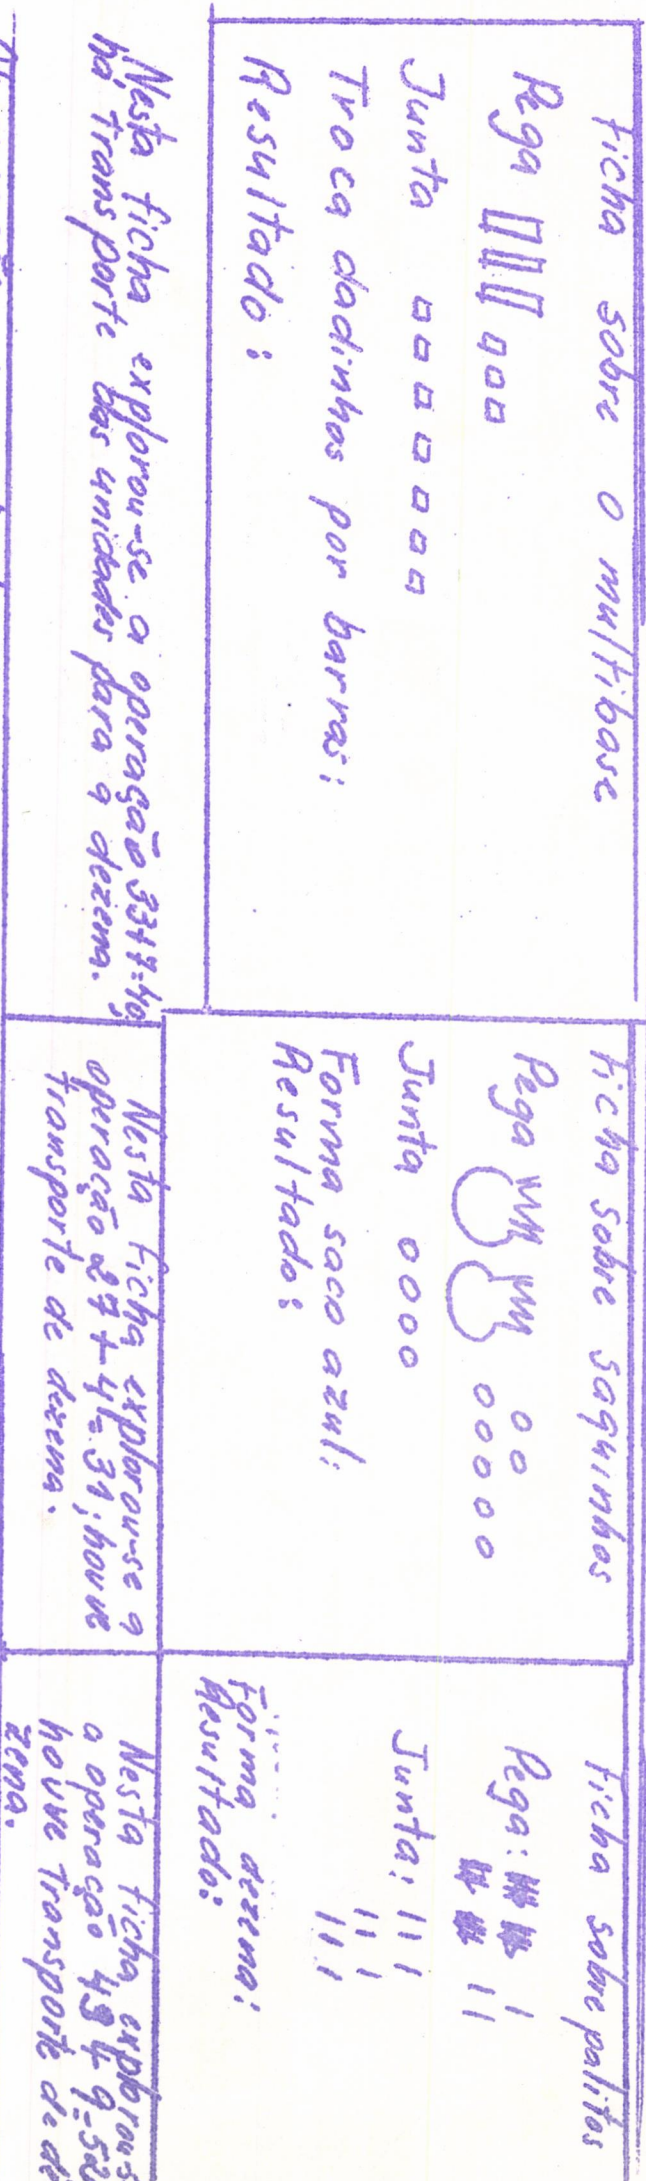 Ficha sobre o multibase
Pega
Junta
Troca dadinhos por barras:
Resultado:
Nesta ficha explorou-se a operação 33+7=40
há transporte das unidades para a dezena.
Ficha sobre saquinhos
Pega
Junta
Forma saco azul:
Resultado:
Nesta ficha explorou-se a
operação 27+4=31; houve
transporte de dezena.
Ficha sobre palitos
Pega:
Junta:
Forma dezena:
Resultado:
Nesta ficha explorou-s
a operação 43+9=52
houve transporte de de
zena.